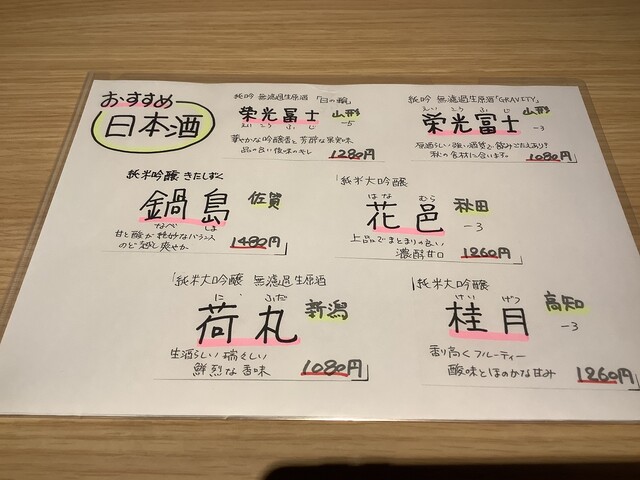 おすすめ
日本酒
純吟 無濾過生原酒「日の輪」
えいこうふじ
栄光冨士 山形
-5
華やかな吟醸香と芳醇な果実味
品の良い後味のキレ 1280円
純吟 無濾過生原酒「GRAVITY」
えいこうふじ
栄光冨士 山形
-3
原酒らしい強い酒質で飲みごたえあり!
秋の食材に合います。 1080円
純米吟醸 きたしずく
鍋島 佐賀
なべしま
甘と酸が絶妙なバランス
のど越し爽やか 1480円
純米大吟醸
はなむら
花邑 秋田
-3
上品でまとまりの良い
濃醇甘口 1260円
純米大吟醸 無濾過生原酒
にふだ
荷札 新潟
生酒らしい瑞々しい
鮮烈な香味 1080円
純米大吟醸
けいげつ
桂月 高知
-3
香り高くフルーティー
酸味とほのかな甘み 1260円